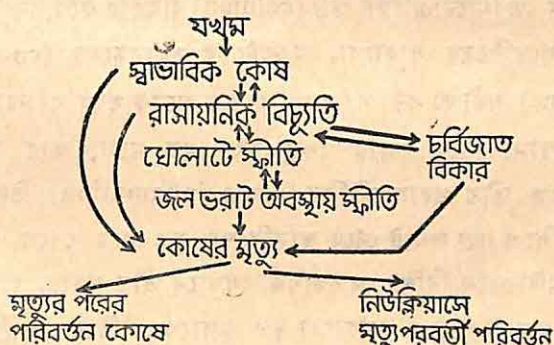 যখম
স্বাভাবিক কোষ
রাসায়নিক বিচ্যুতি
ঘোলাটে স্ফীতি
চর্বিজাত
বিকার
জল ভরাট অবস্থায় স্ফীতি
কোষের মৃত্যু
মৃত্যুর পরের
পরিবর্ত্তন কোষে
নিউক্লিয়াসে
মৃত্যুপরবর্তী পরিবর্ত্তন